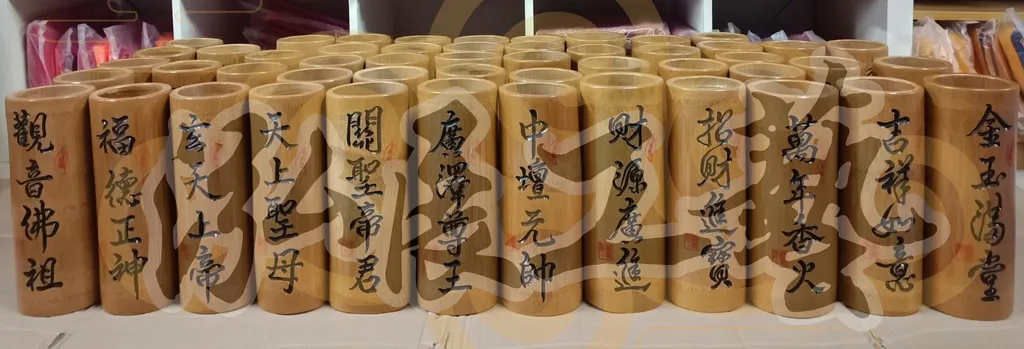 觀音佛祖
福德正神
玄天上帝
天上聖母
關聖帝君
廣澤尊王
中壇元帥
財源廣進
招財進寶
萬年香火
吉祥如意
金玉滿堂